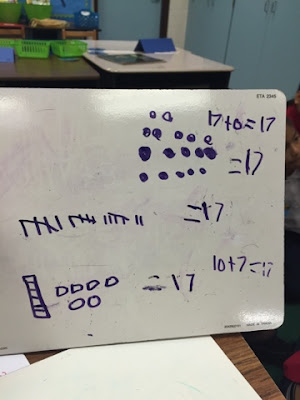 ETA 2945
17+0=17
=17
=17
10+7=17
=17